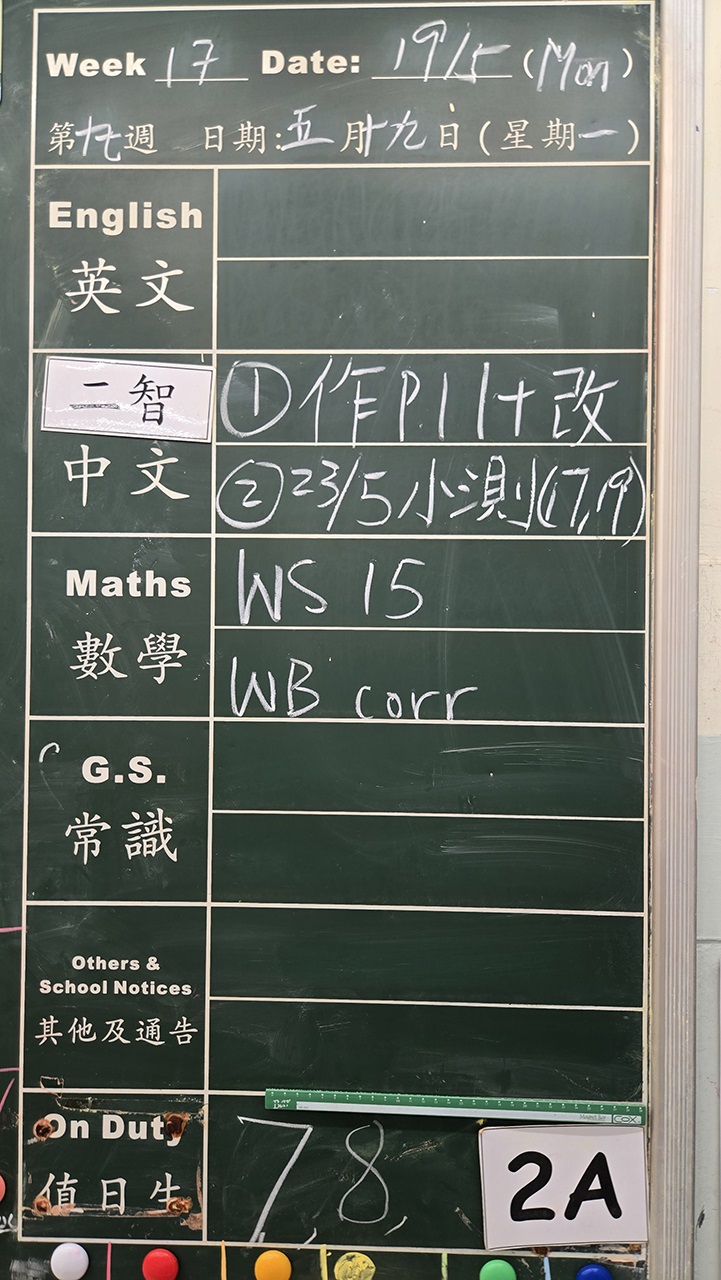 Week 17 Date: 19/5 (Mon)
第十七週 日期:五月十九日(星期一)
English
英文
二智
①作P.11+改
中文
②23/5小測(17,19)
Maths
WS 15
數學
WB corr
G.S.
常識
Others &
School Notices
其他及通告
COX
On Duty
7, 8,
值日生
2A